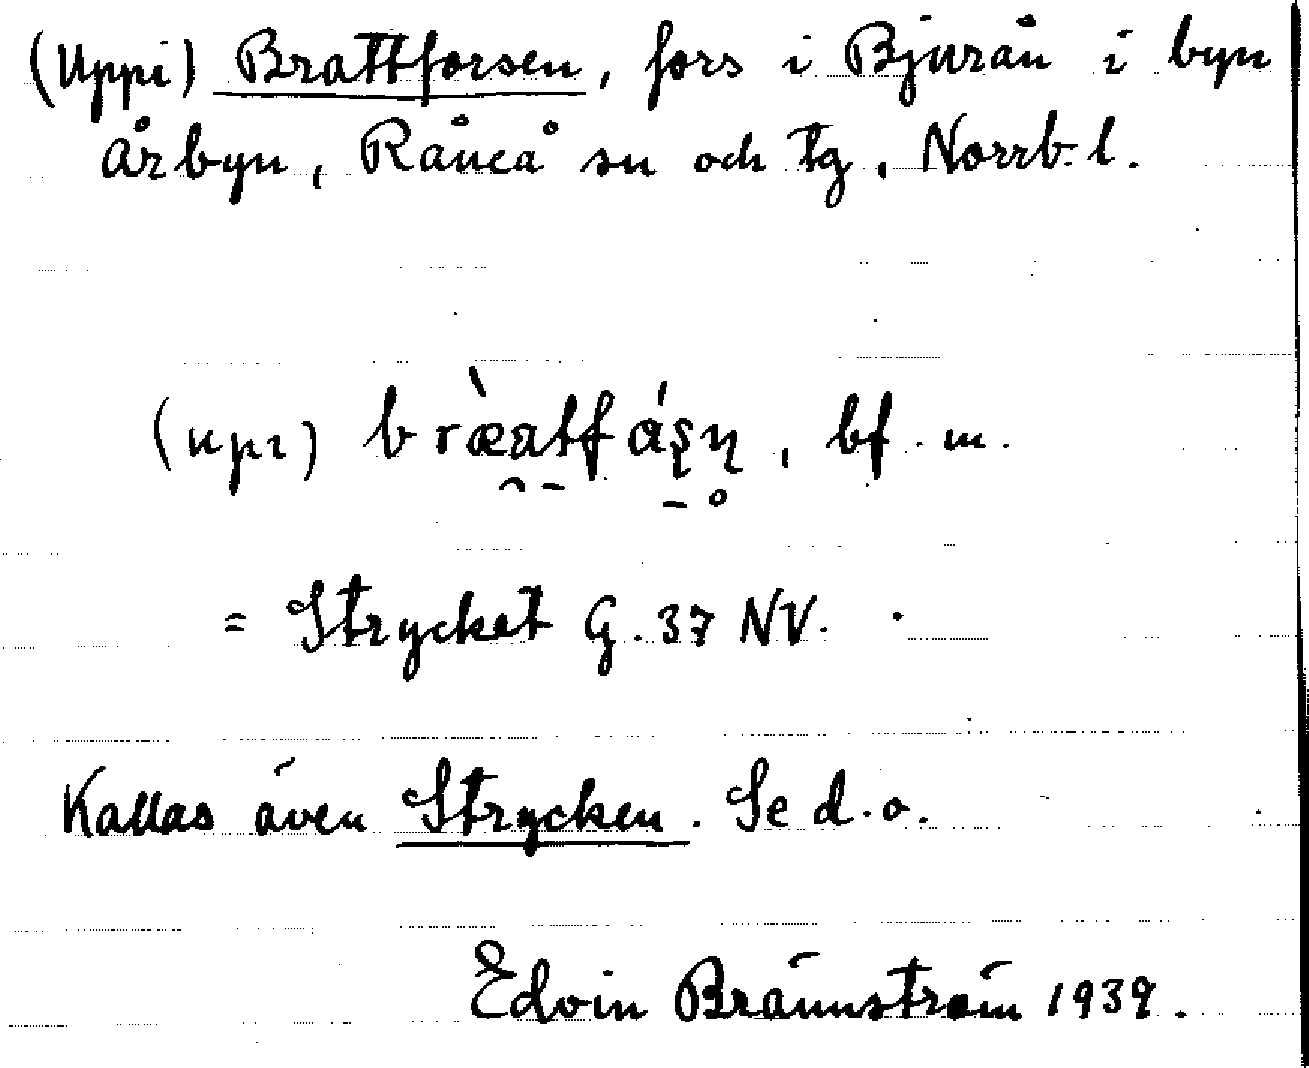 (Uppi) Brattforsen, fors i Bjurån i byn
Årbyn, Råneå sn och tg, Norrb. l.
(upi) bræ̀atfáşņ, bf. m.
= Strycket G. 37 NV.
Kallas även Strycken. Se d.o.
Edvin Brännström 1939.